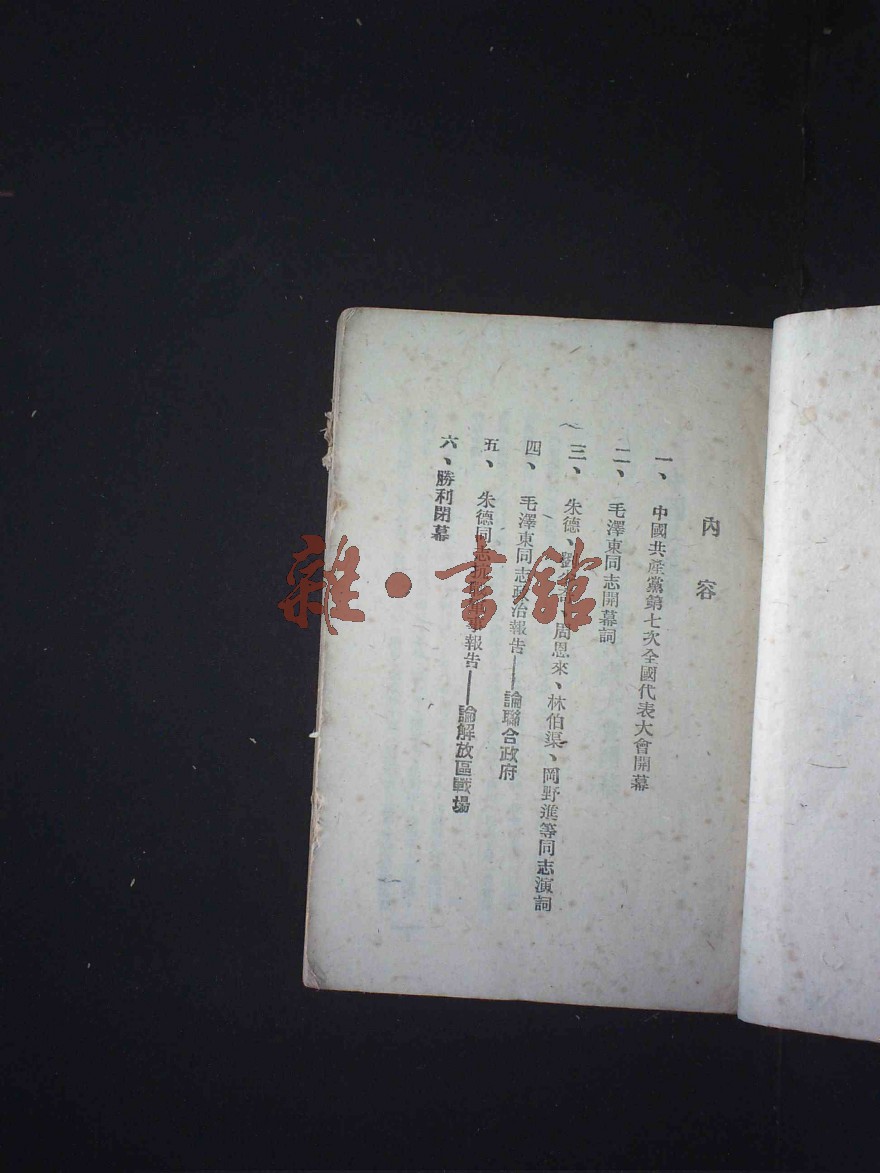 內容
一、中國共產黨第七次全國代表大會開幕
二、毛澤東同志開幕詞
三、朱德、劉少奇、周恩來、林伯渠、岡野進等同志演詞
四、毛澤東同志政治報告——論聯合政府
五、朱德同志軍事報告——論解放區戰場
六、勝利閉幕
雜·書館